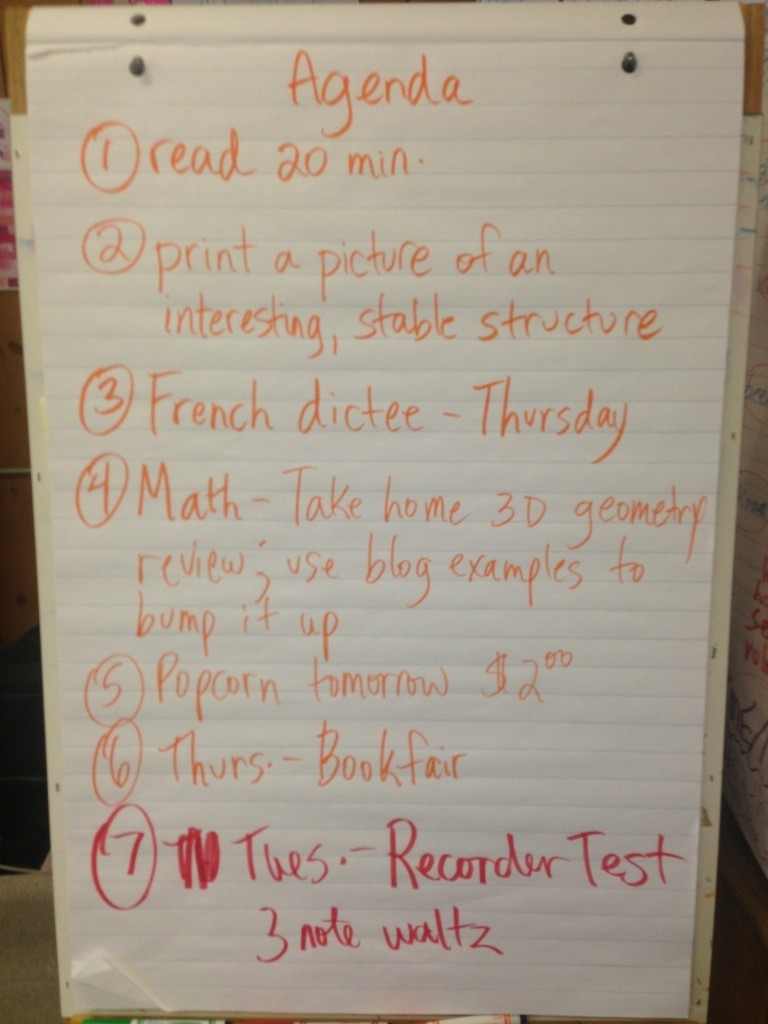 Agenda
① read 20 min.
② print a picture of an
interesting, stable structure
③ French dictee - Thursday
④ Math - Take home 3D geometry
review; use blog examples to
bump it up
⑤ Popcorn tomorrow $2.00
⑥ Thurs. - Bookfair
⑦ Tues. - Recorder Test
3 note waltz